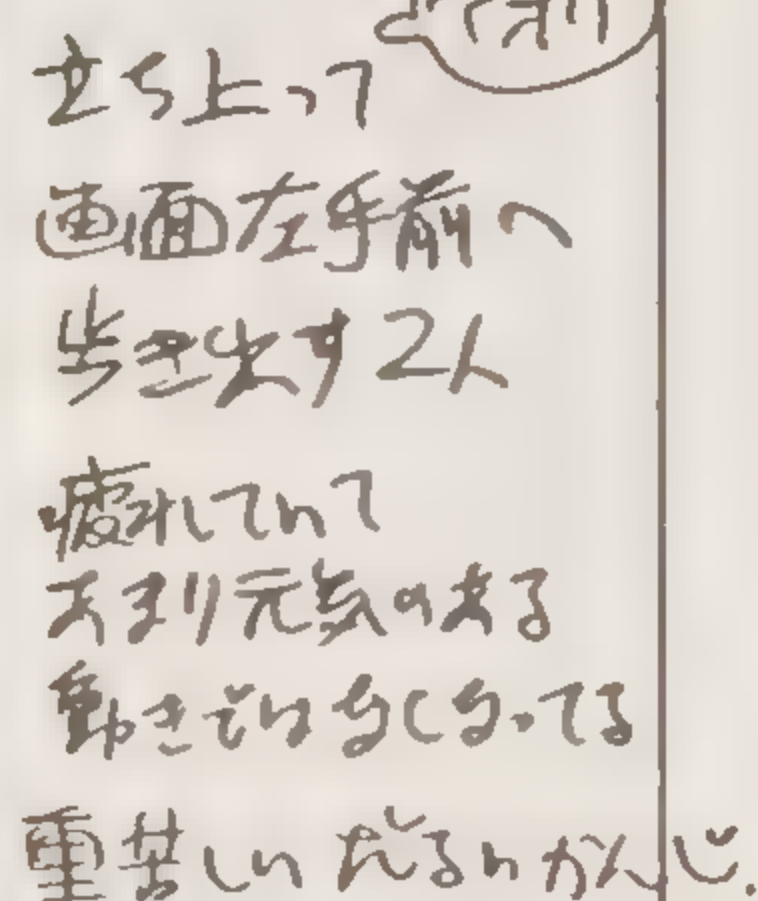 立ち上って
画面左手前へ
歩き出す2人
疲れていて
あまり元気のある
動きではなくなってる
重苦しい だるい かんじ.